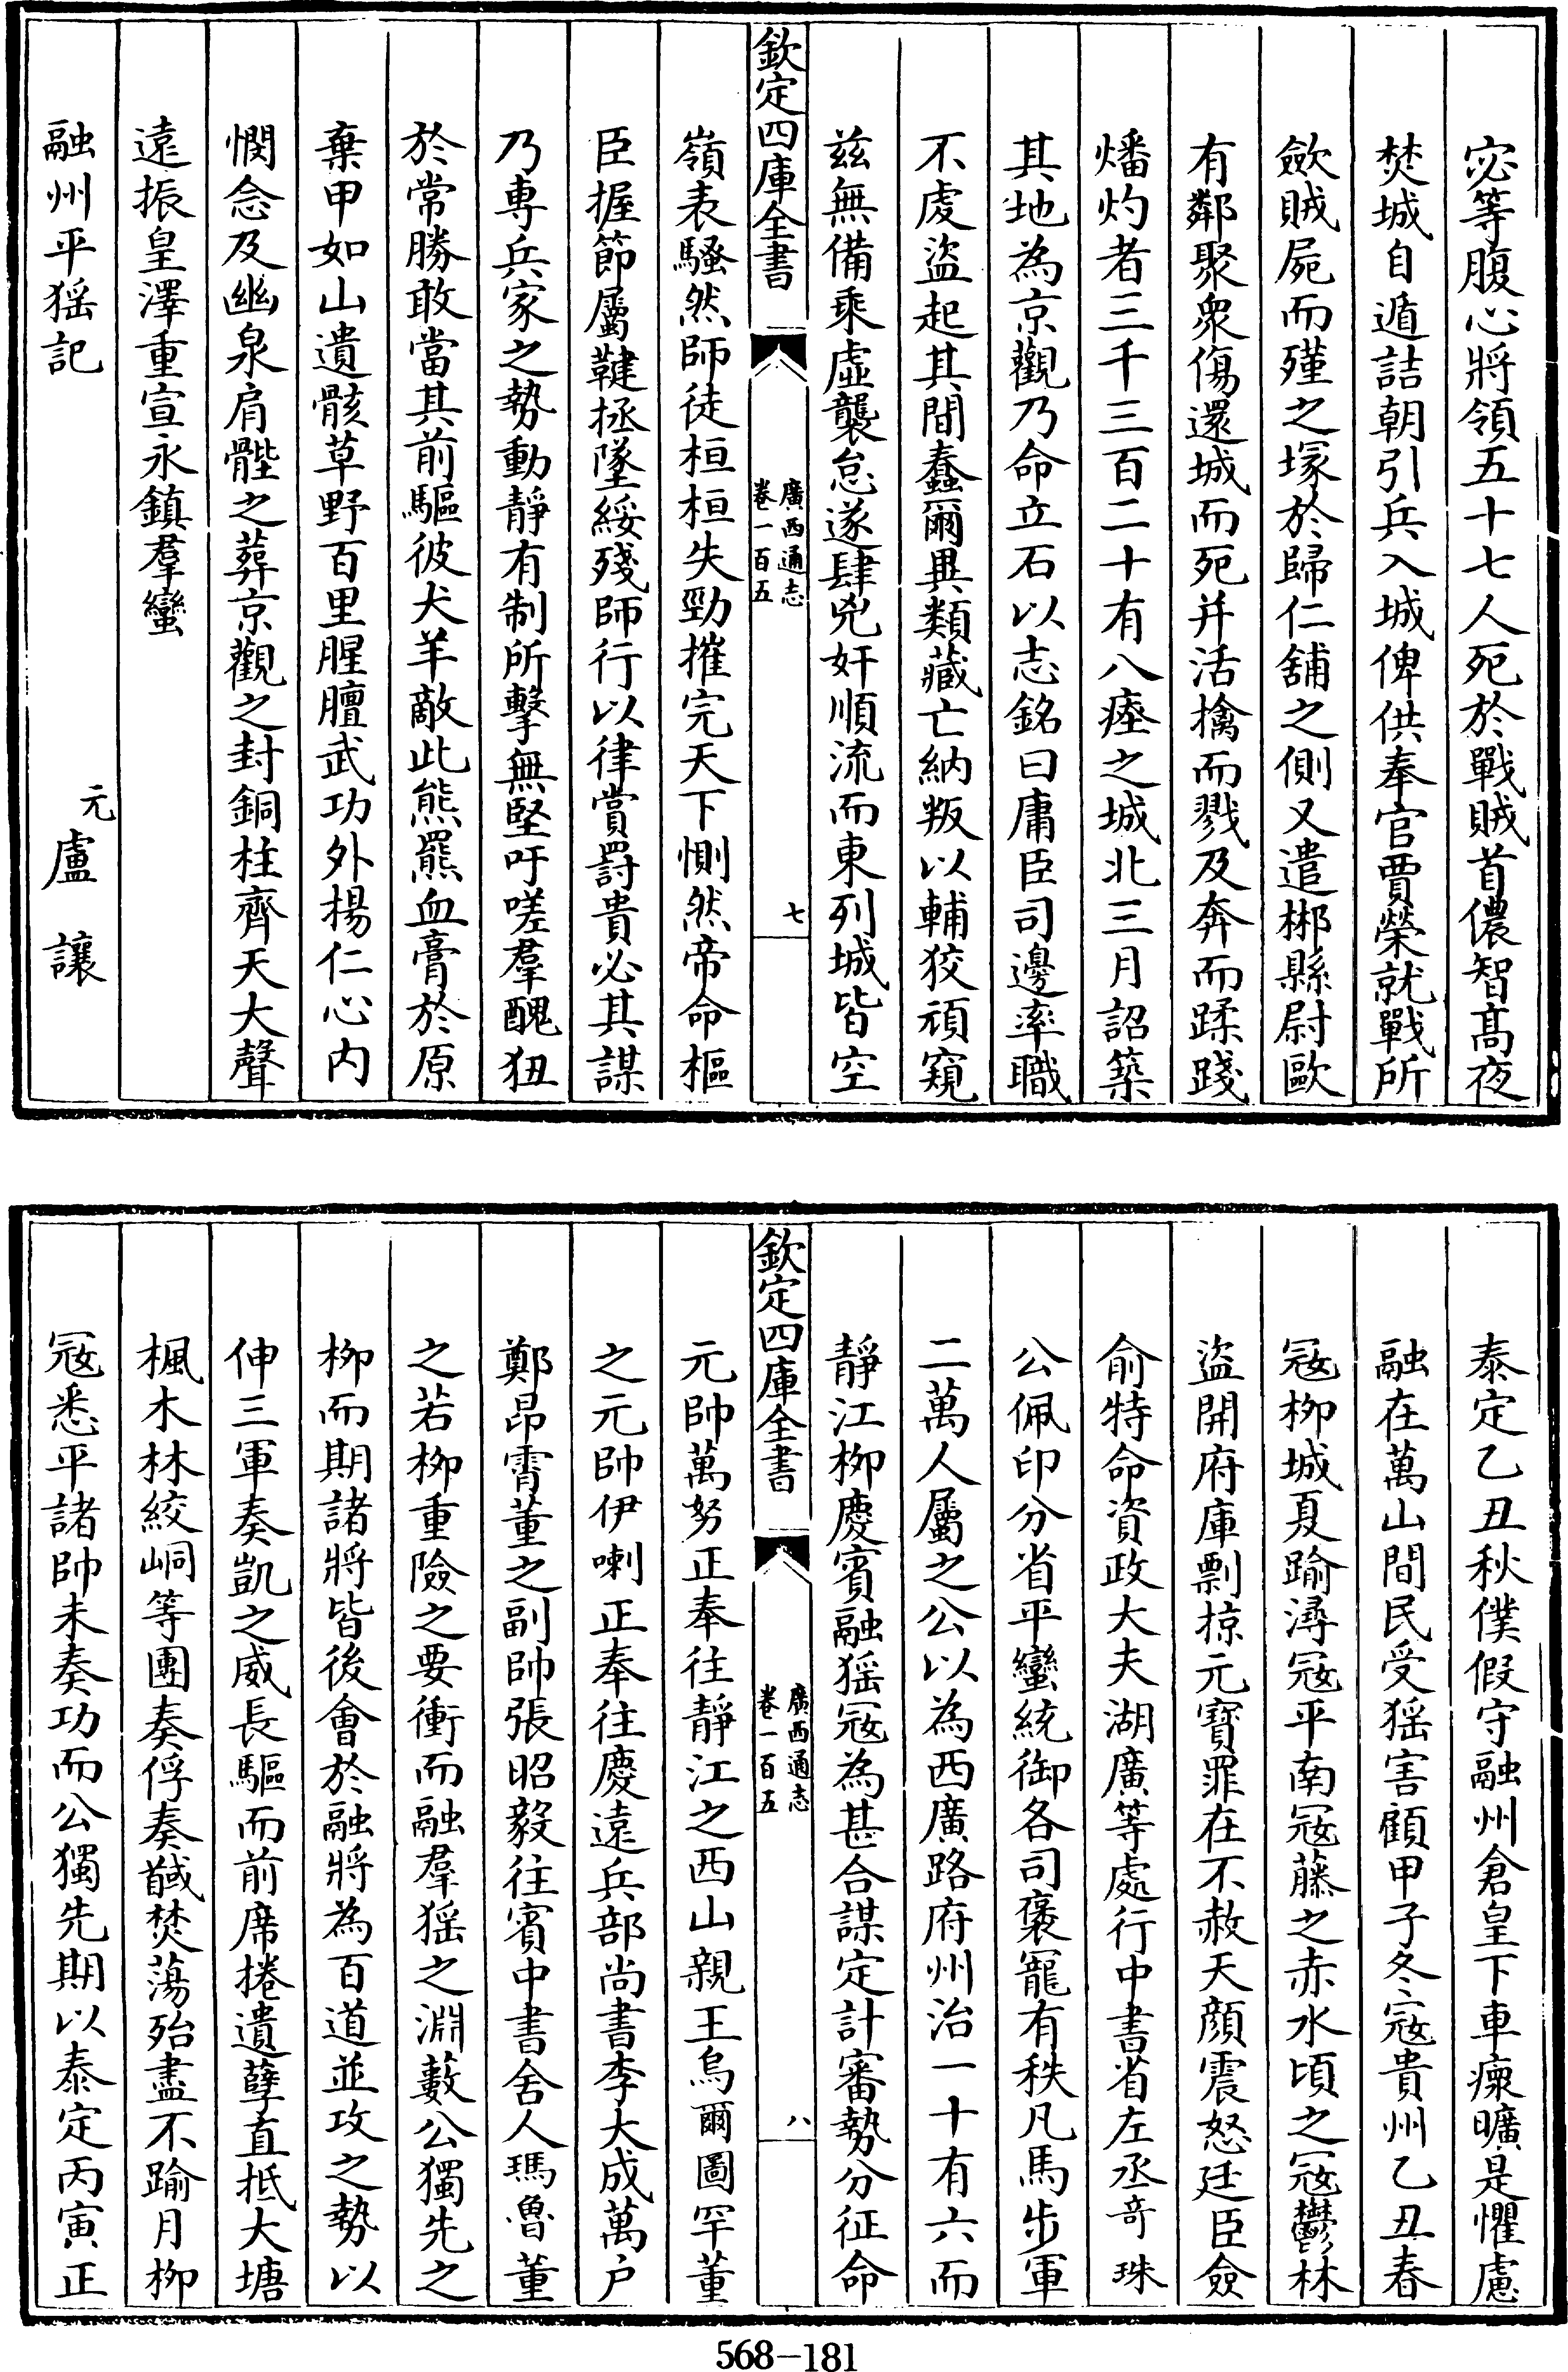 宓等腹心將領五十七人死於戰賊首儂智髙夜
焚城自遁詰朝引兵入城俾供奉官賈榮就戰所
斂賊屍而殣之塚於歸仁舖之側又遣郴縣尉歐
有鄰聚衆傷還城而死并活擒而戮及奔而蹂踐
燔灼者三千三百二十有八瘞之城北三月詔築
其地為京觀乃命立石以志銘曰庸臣司邊率職
不虔盜起其間蠢爾異類藏亡納叛以輔狡頑窺
兹無備乘虛襲怠遂肆兇奸順流而東列城皆空
欽定四庫全書
廣西通志
卷一百五
七
嶺表騷然師徒桓桓失勁摧完天下惻然帝命樞
臣握節屬鞬拯墜綏殘師行以律賞罸貴必其謀
乃専兵家之勢動靜有制所擊無堅吁嗟羣醜狃
於常勝敢當其前驅彼犬羊敵此熊羆血膏於原
棄甲如山遺骸草野百里腥膻武功外揚仁心内
憫念及幽泉肩髀之葬京觀之封銅柱齊天大聲
遠振皇澤重宣永鎮羣蠻
融州平猺記
元
盧讓
泰定乙丑秋僕假守融州倉皇下車瘝曠是懼慮
融在萬山間民受猺害顧甲子冬寇貴州乙丑春
冦柳城夏踰潯冦平南冦藤之赤水頃之冦鬱林
盜開府庫剽掠元寶罪在不赦天顔震怒廷臣僉
俞特命資政大夫湖廣等處行中書省左丞竒珠
公佩印分省平蠻統御各司褒寵有秩凡馬步軍
二萬人屬之公以為西廣路府州治一十有六而
靜江柳慶賓融猺冦為甚合謀定計審勢分征命
欽定四庫全書
廣西通志
卷一百五
八
元帥萬努正奉往靜江之西山親王烏爾圖罕董
之元帥伊喇正奉往慶遠兵部尚書李大成萬户
鄭昂霄董之副帥張昭毅往賓中書舍人瑪魯董
之若柳重險之要衝而融羣猺之淵藪公獨先之
柳而期諸將皆後會於融將為百道並攻之勢以
伸三軍奏凱之威長驅而前席捲遺孽直抵大塘
楓木林絞峒等團奏俘奏馘焚蕩殆盡不踰月柳
冦悉平諸帥未奏功而公獨先期以泰定丙寅正
568-181